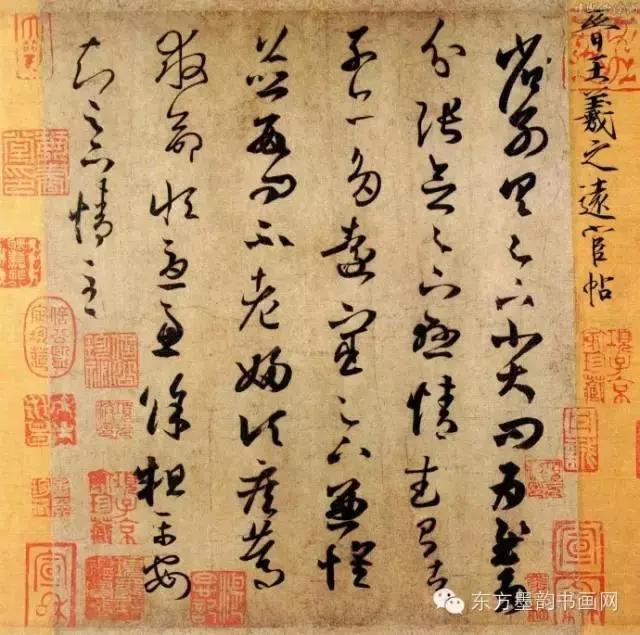 晉王羲之遠宦帖
省別具足下小大問為慰多
分張念足下懸情武昌諸
子亦多遠宦足下兼懷
並數問不老婦頃疾篤
救命恒憂慮餘粗平安
知足下情至
項子京家珍藏
宣和
东方墨韵书画网